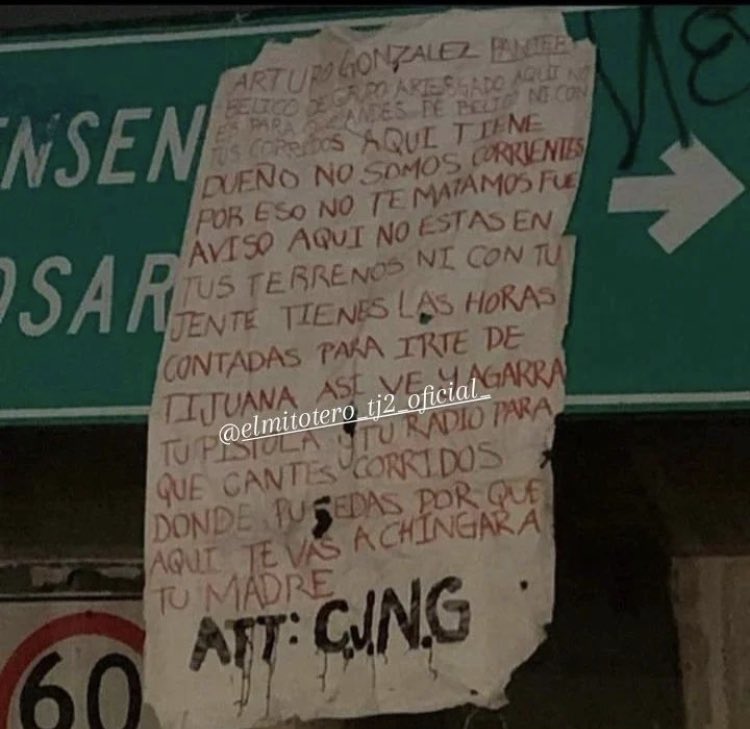 ENSEN
OSAR
60
ARTURO GONZALEZ PANTER
BELICO DE GRUPO ARIESGADO AQUI NO
ES PARA QUE ANDES DE BELICO NI CON
TUS CORRIDOS AQUI TIENE
DUEÑO NO SOMOS CORRIENTES
POR ESO NO TE MATAMOS FUE
AVISO AQUI NO ESTAS EN
TUS TERRENOS NI CON TU
JENTE TIENES LAS HORAS
CONTADAS PARA IRTE DE
TIJUANA ASI VE Y AGARRA
TU PISTOLA Y TU RADIO PARA
QUE CANTES CORRIDOS
DONDE PUEDAS POR QUE
AQUI TE VAS A CHINGAR A
TU MADRE
ATT: C.J.N.G
@elmitotero_tj2_oficial_